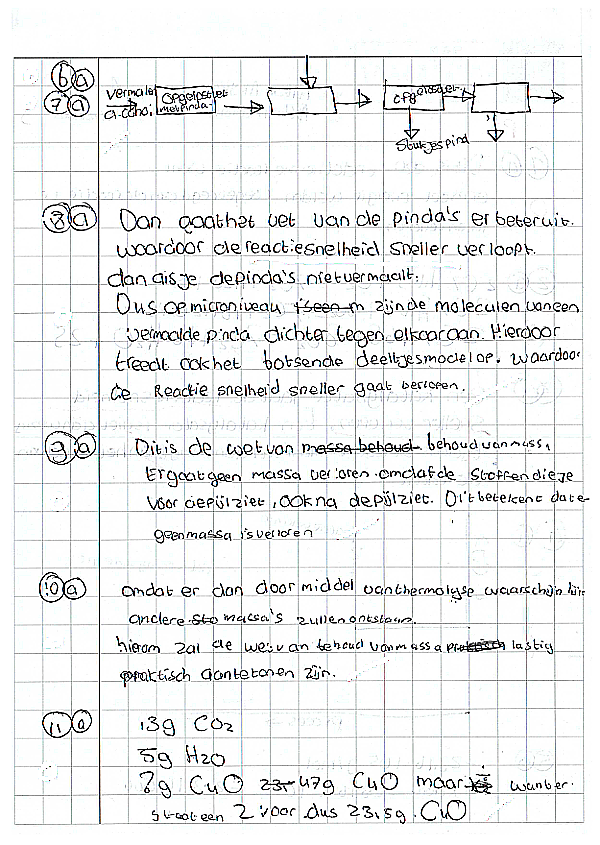 6 a
7 a
vermalen
alcohol
Opgelosdet
met pinda
Opgelosdet
Stukjes pind
8 a Dan gaat het vet van de pinda's er beter uit.
waardoor de reactiesnelheid sneller verloopt.
dan als je de pinda's niet vermaalt.
Dus op microniveau zijn de moleculen van een
vermaalde pinda dichter tegen elkaar aan. Hierdoor
treedt ook het botsende deeltjesmodel op. waardoor
de Reactie snelheid sneller gaat verlopen.
9 a Dit is de wet van massa behoud behoud van massa
Er gaat geen massa verloren omdat de stoffen die je
voor de pijl ziet, ook na de pijl ziet. Dit betekent dat e
geen massa is verloren
10 a omdat er dan door middel van thermolyse waarschijnlijk
andere sto massa's zullen ontstaan.
hierom zal de wet van behoud van massa lastig
praktisch aantetonen zijn.
11 a 13g CO2
5g H2O
?g CuO 23,- 47g CuO maar
staat een 2 voor dus 23,5g. CuO